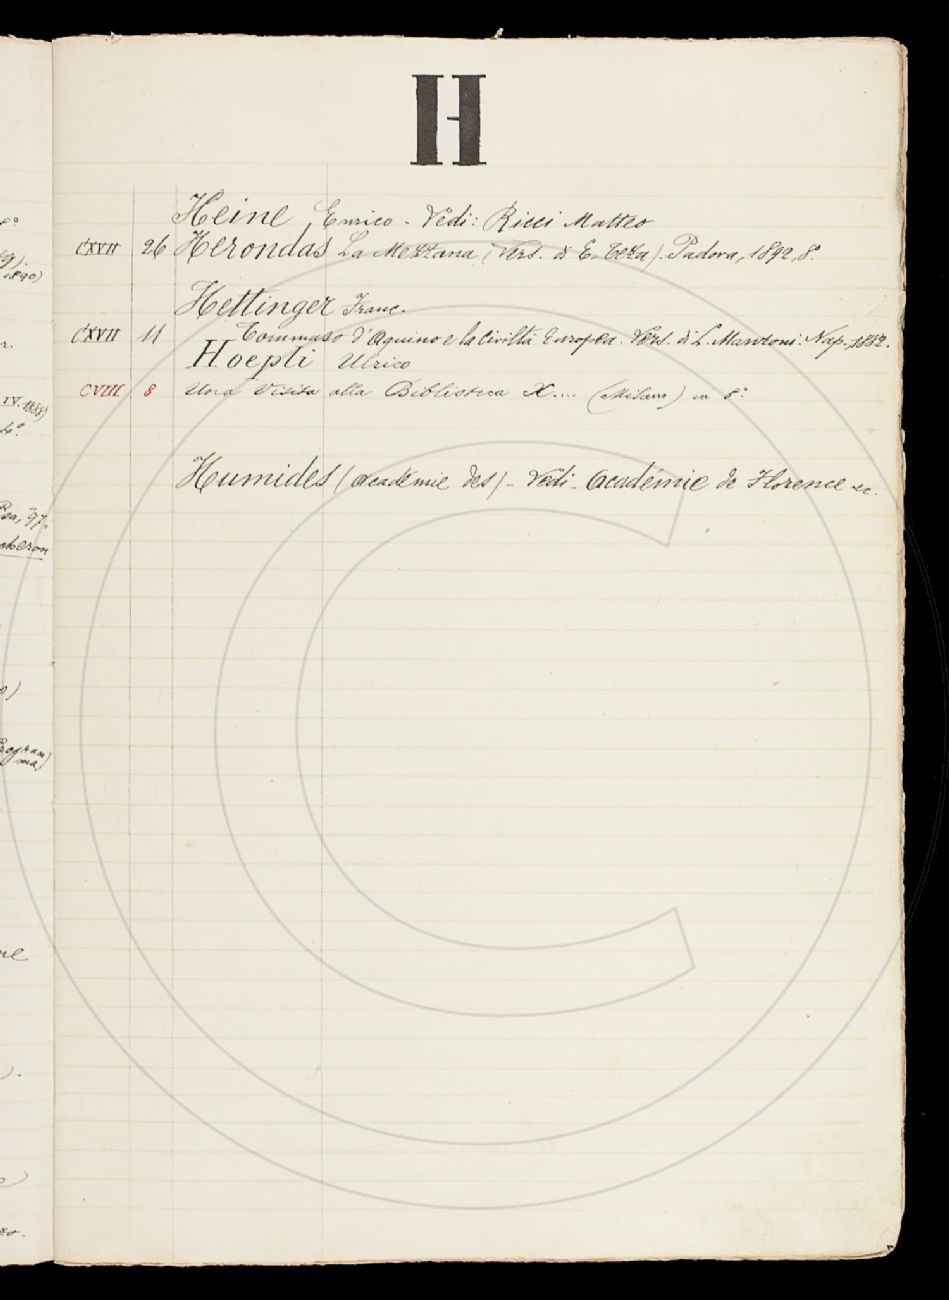 H
Heine Enrico - Vedi: Ricci Matteo
CXVII 26 Herondas La Mezzana (Vers. di E. Teza). Padova, 1892, 8º
Hettinger Franc.
CXVII 11 Tommaso d'Aquino e la civiltà Europea. Vers. di L. Manzoni. Nap. 1882.
Hoepli Ulrico
CVIII 8 Una Visita alla Biblioteca X.... (Milano) in 8º
Humides (Académie des) - Vedi - Académie de Florence ec.